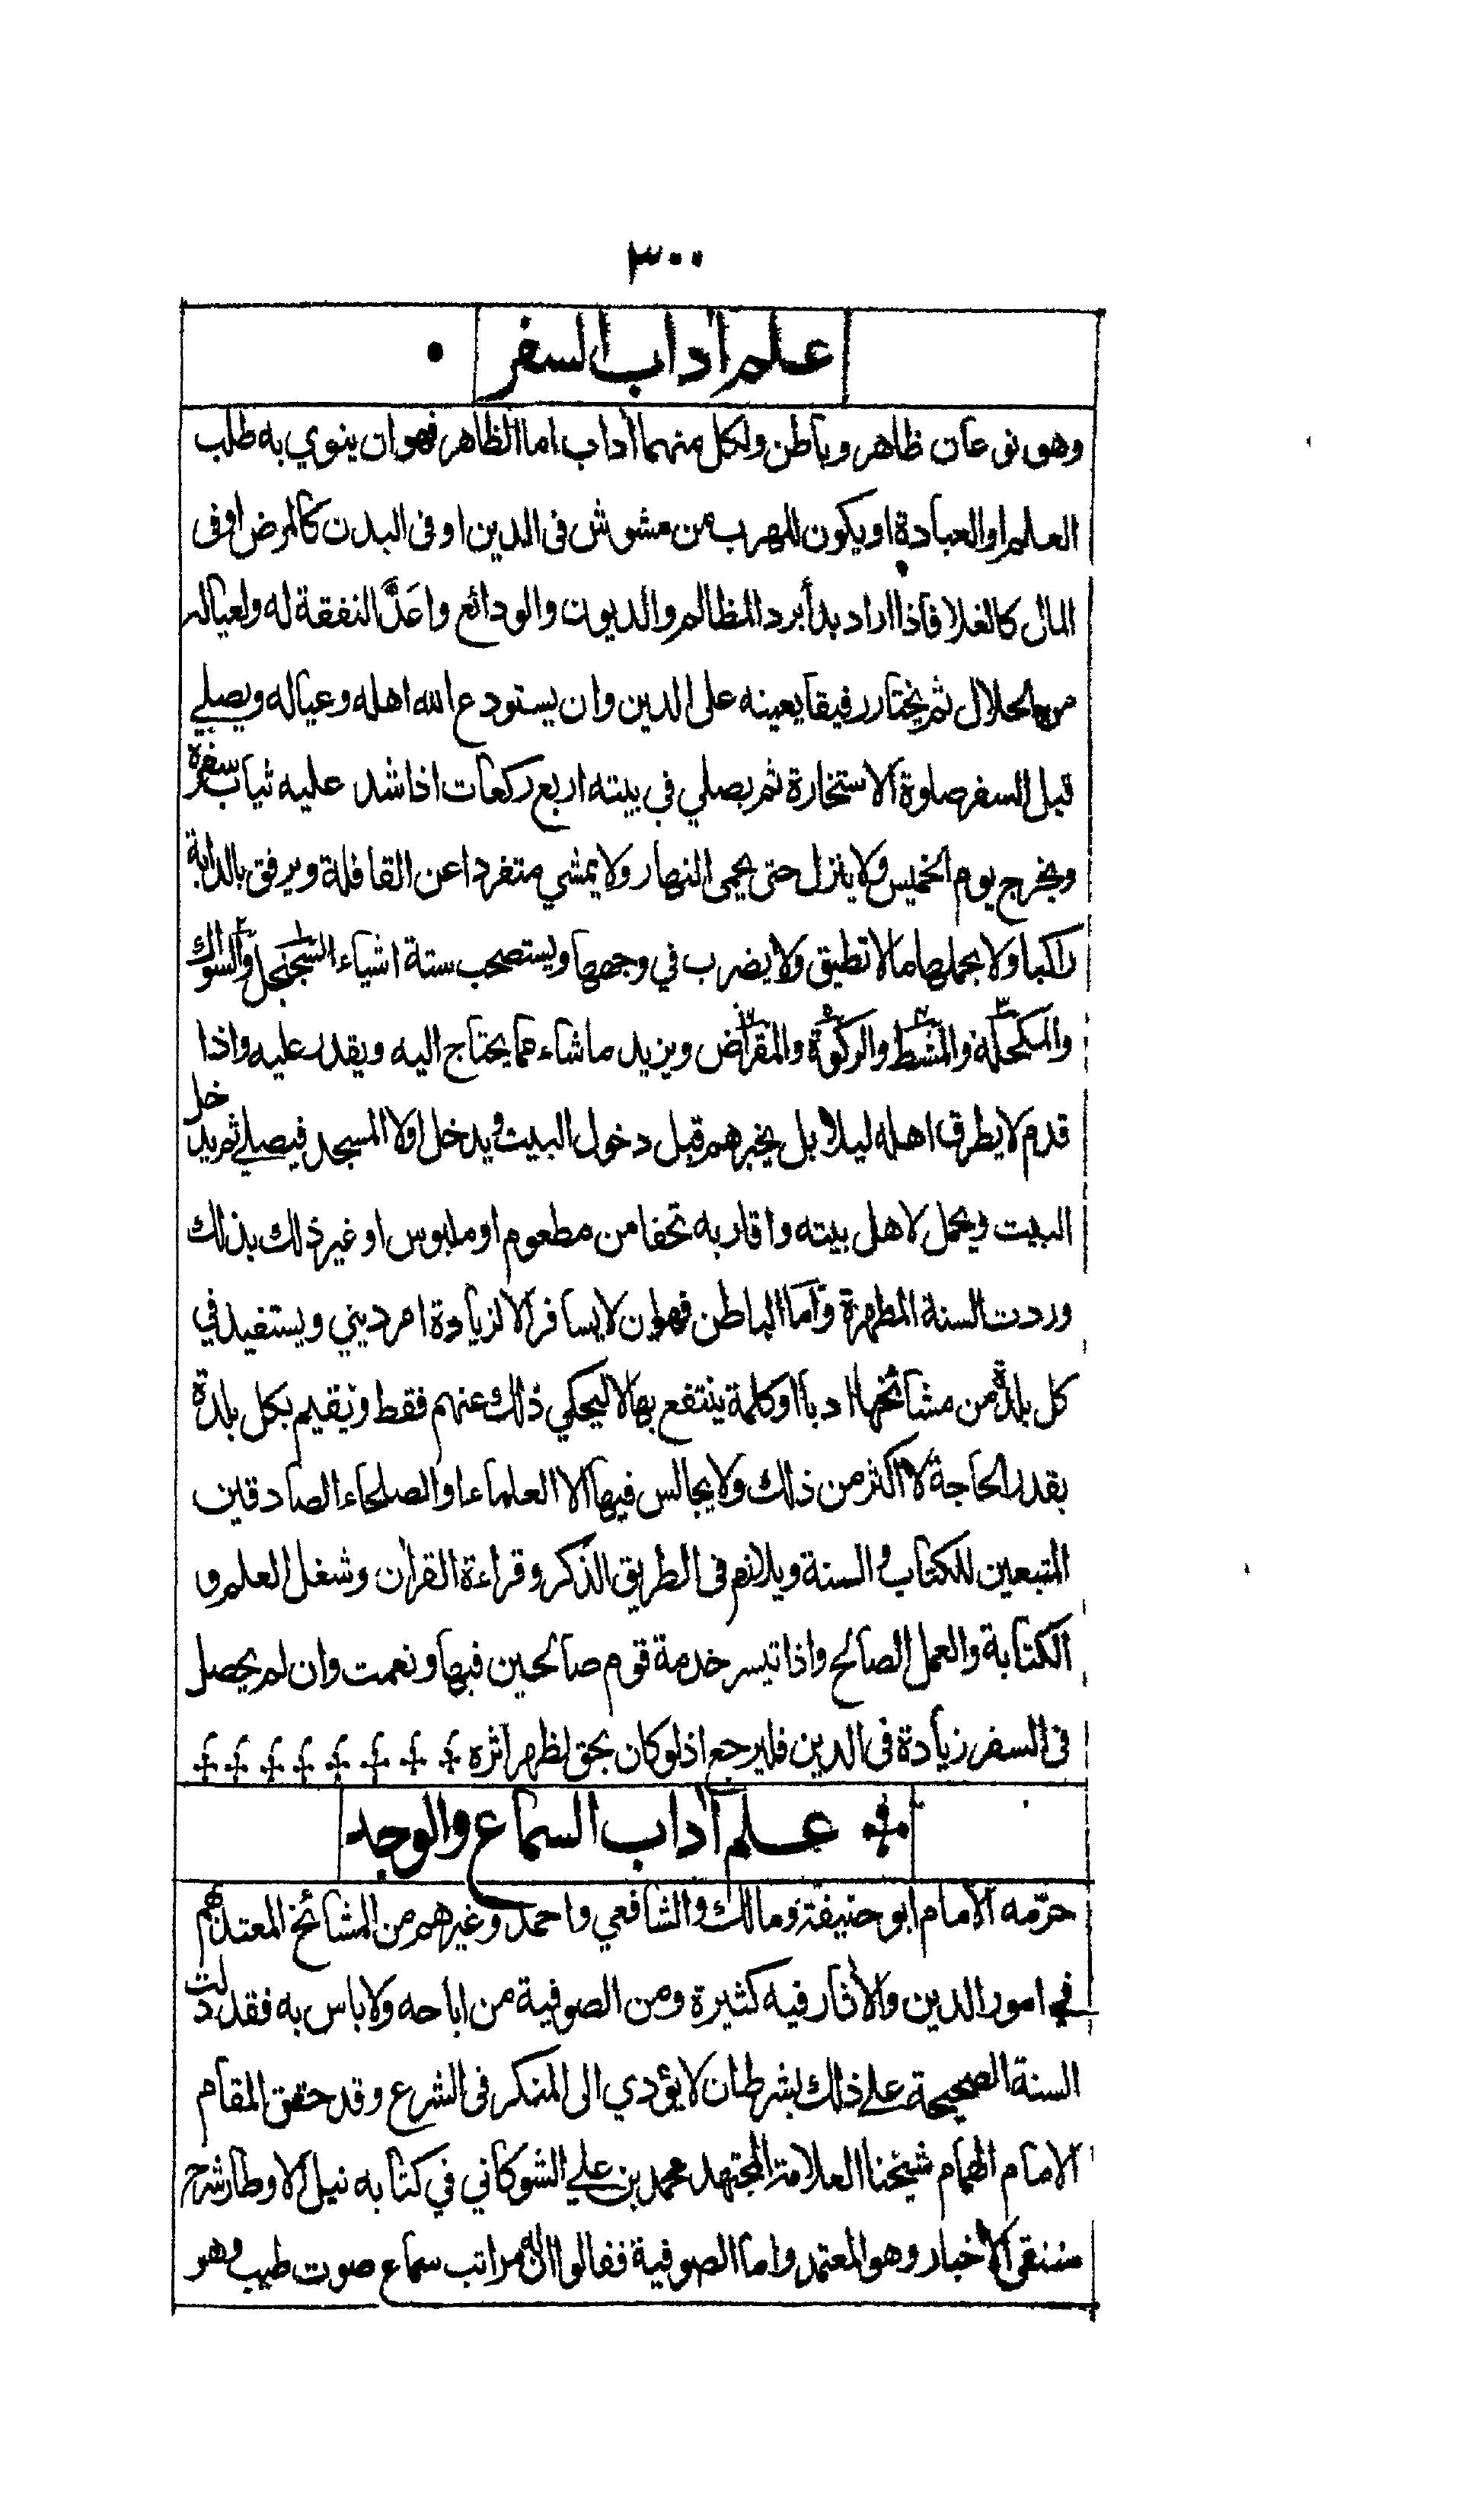 ٣٠٠
علم آداب السفر
وهو نوعان ظاهر وباطن ولكل منهما آداب اما الظاهر فهو ان ينوي به طلب
العلم او العبادة او يكون للهرب من مشوش فى الدين او فى البدن كالمرض او فى
المال كالغلا فاذا اراد بدأ برد المظالم والديون والودائع واعدَّ النفقة له ولعياله
من الحلال ثم يختار رفيقا يعينه على الدين وان يستودع الله اهله وعياله ويصلي
قبل السفر صلوة الاستخارة ثم يصلي في بيته اربع ركعات اذا شد عليه ثياب سفره
ويخرج يوم الخميس ولا ينزل حتى يحمى النهار ولا يمشي متفردا عن القافلة ويرفق بالدابة
راكبا ولا يحملها ما لا تطيق ولا يضرب في وجهها ويستصحب ستة اشياء السجنجل والسواك
والمكحلة والمشط والركوة والمقراض ويزيد ما شاء مما يحتاج اليه ويقدر عليه واذا
قدم لا يطرق اهله ليلا بل يخبرهم قبل دخول البيت ويدخل اولا المسجد فيصلي ثم يدخل
البيت ويحمل لاهل بيته واقاربه تحفا من مطعوم او ملبوس او غير ذلك بذلك
وردت السنة المطهرة واما الباطن فهو ان لا يسافر الا لزيادة امر ديني ويستفيد في
كل بلدة من مشائخها ادبا او كلمة ينتفع بها لا ليحكي ذلك عنهم فقط ويقيم بكل بلدة
بقدر الحاجة لا اكثر من ذلك ولا يجالس فيها الا العلماء او الصلحاء الصادقين
المتبعين للكتاب والسنة ويلازم فى الطريق الذكر وقراءة القرآن وشغل العلم و
الكتابة والعمل الصالح واذا تيسر خدمة قوم صالحين فبها ونعمت وان لم يحصل
فى السفر زيادة فى الدين فليرجع اذ لو كان بحق لظهر اثره
علم آداب السماع والوجد
حرّمه الامام ابو حنيفة ومالك والشافعي واحمد وغيرهم من المشائخ المعتد بهم
في امور الدين والآثار فيه كثيرة ومن الصوفية من اباحه ولا باس به فقد دلت
السنة الصحيحة على ذلك بشرط ان لا يؤدي الى المنكر فى الشرع وقد حقق المقام
الامام الهمام شيخنا العلامة المجتهد محمد بن علي الشوكاني في كتابه نيل الاوطار شرح
منتقى الاخبار وهو المعتمد واما الصوفية فقالوا اول مراتب سماع صوت طيب وهو